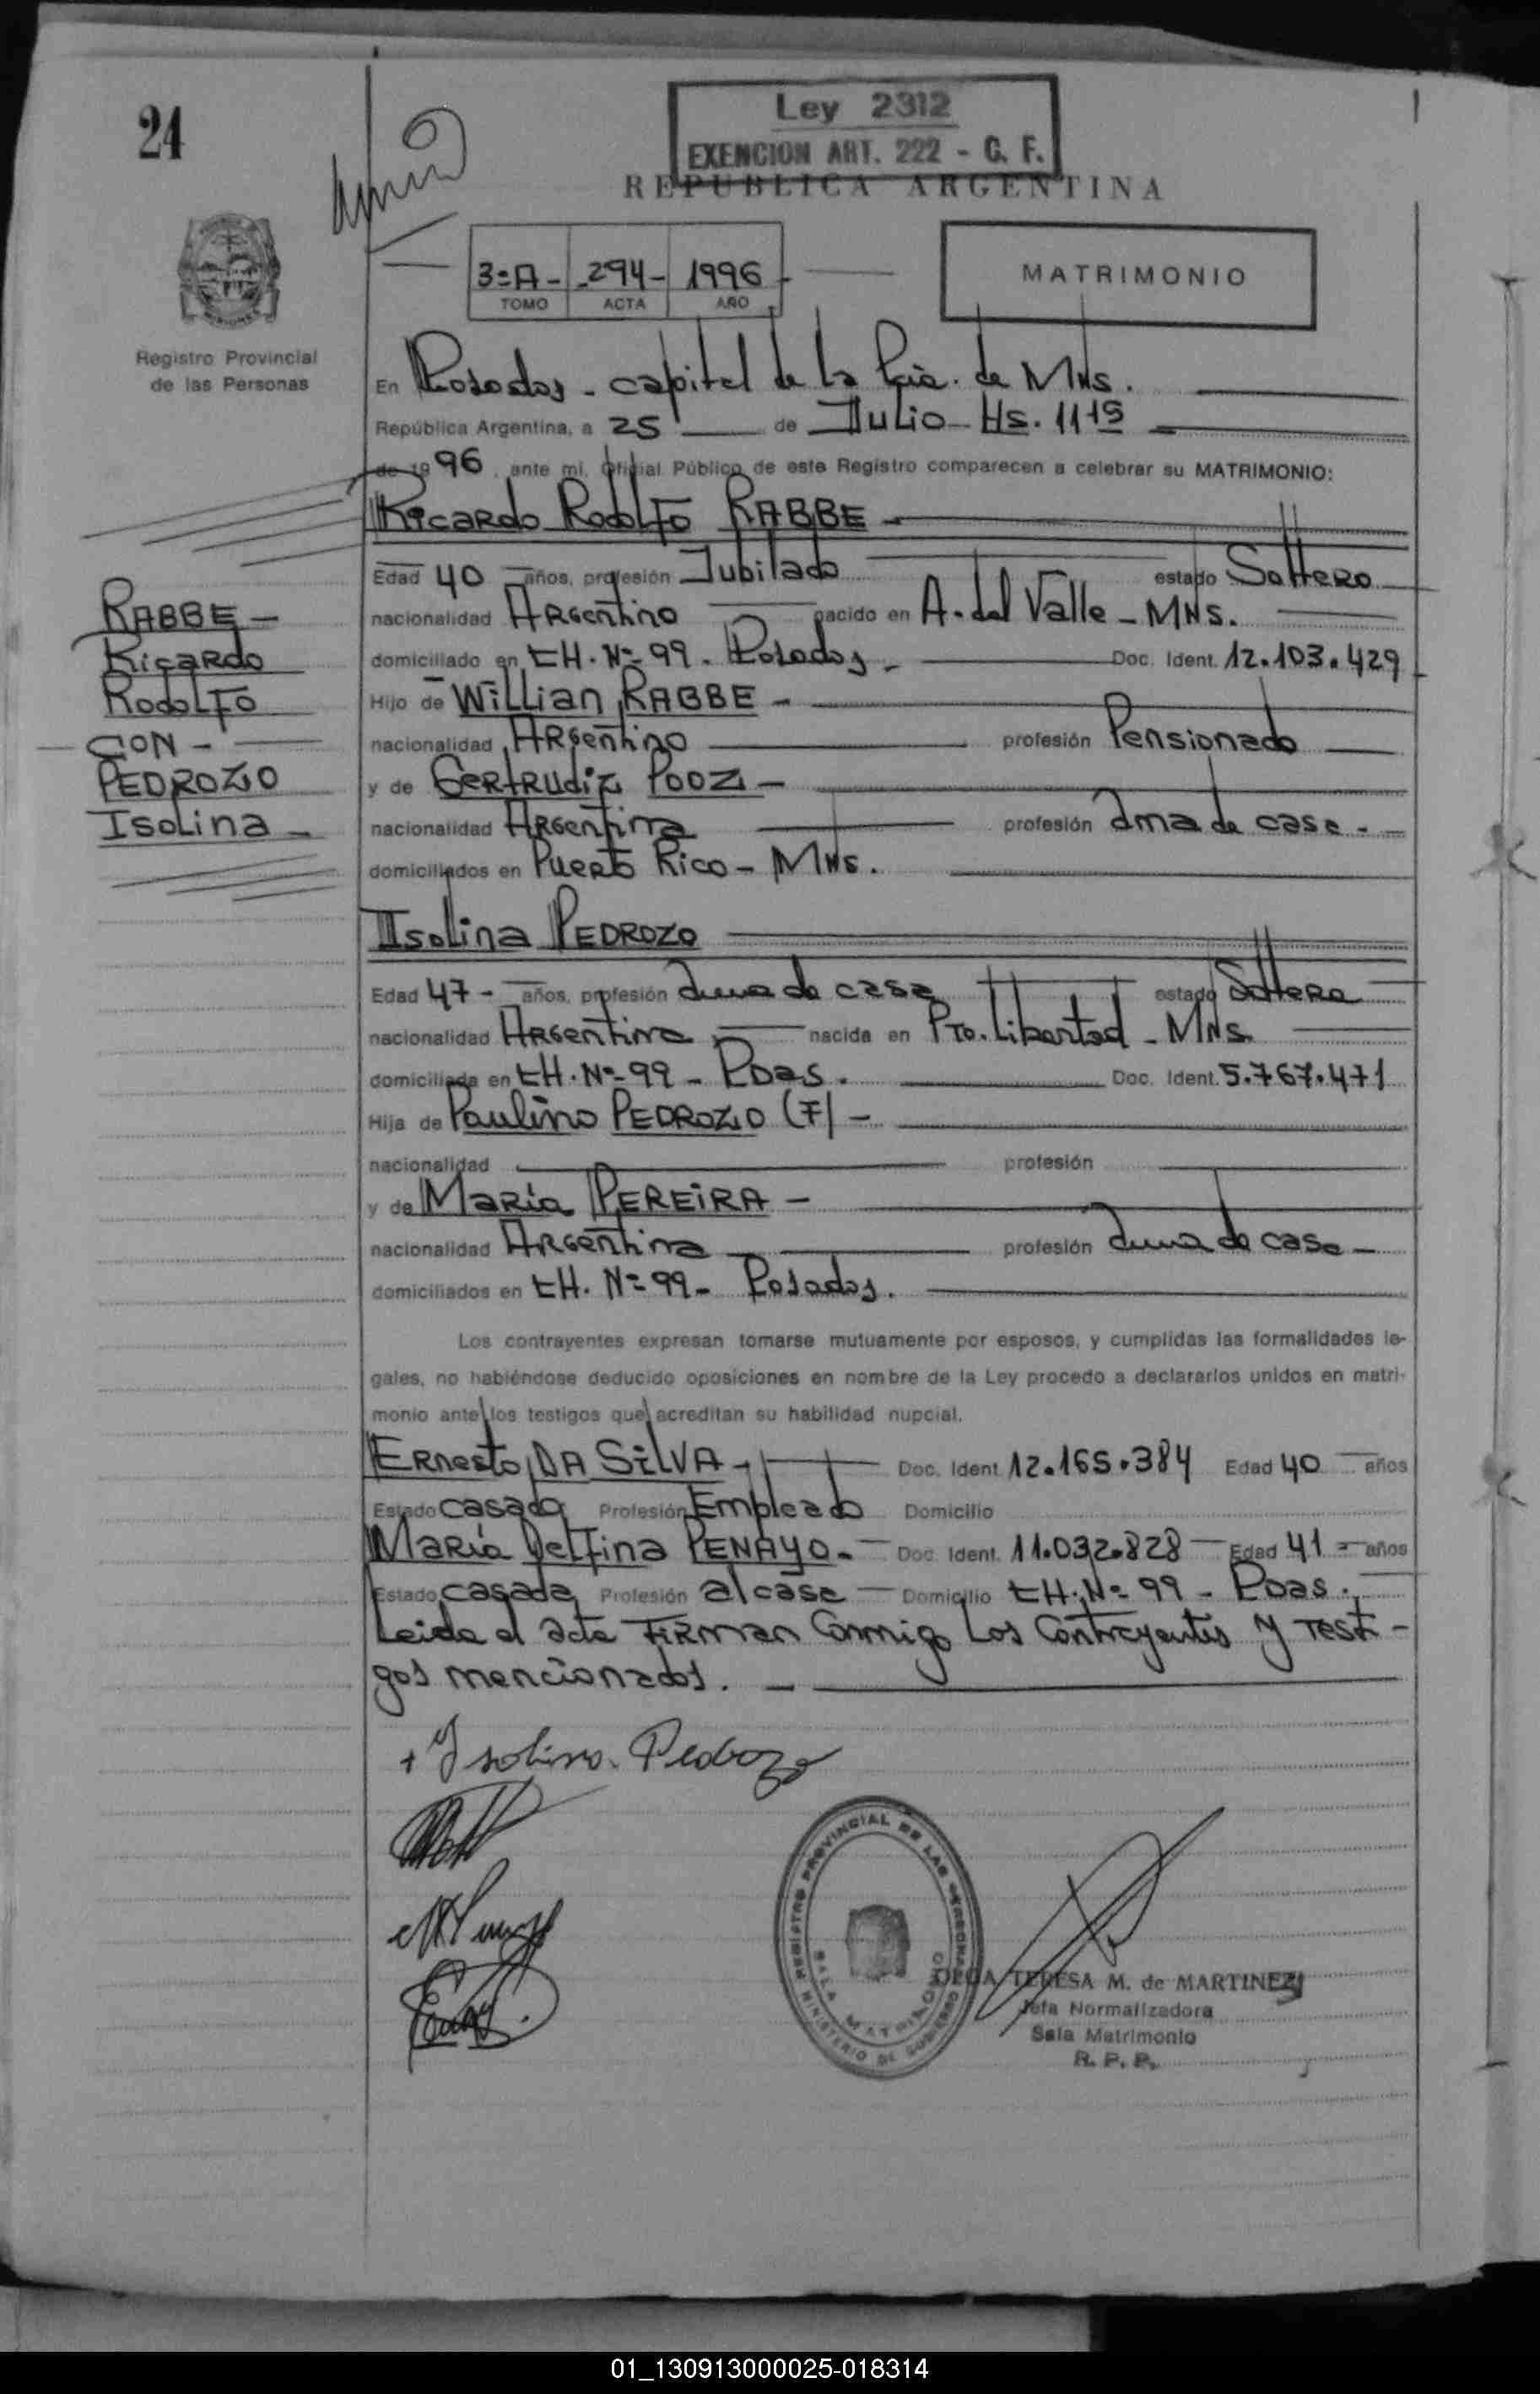 24
Ley 2312
EXENCION ART. 222 - C. F.
REPUBLICA ARGENTINA
3ºA - 294 - 1996
TOMO ACTA AÑO
MATRIMONIO
Registro Provincial
de las Personas
En Posadas - capital de la Pcia. de Mns.
República Argentina, a 25 de Julio Hs. 11 15
de 1996, ante mi, Oficial Público de este Registro comparecen a celebrar su MATRIMONIO:
Ricardo Rodolfo RABBE -
Edad 40 años, profesión Jubilado estado Soltero
nacionalidad Argentino nacido en A. del Valle - Mns.
domiciliado en CH. Nº 99. Posadas - Doc. Ident. 12.103.429
Hijo de Willian RABBE -
nacionalidad Argentino profesión Pensionado
y de Gertrudiz POOZ -
nacionalidad Argentina profesión Ama de casa. -
domiciliados en Puerto Rico - Mns.
RABBE -
Ricardo
Rodolfo
- CON -
PEDROZO
Isolina -
Isolina PEDROZO
Edad 47 - años, profesión Ama de casa estado Soltera
nacionalidad Argentina nacida en Pto. Libertad - Mns
domiciliada en CH. Nº 99 - Pdas. Doc. Ident. 5.767.471
Hija de Paulino PEDROZO (F) -
nacionalidad profesión
y de María PEREIRA -
nacionalidad Argentina profesión Ama de casa -
domiciliados en CH. Nº 99 - Posadas.
Los contrayentes expresan tomarse mutuamente por esposos, y cumplidas las formalidades le-
gales, no habiéndose deducido oposiciones en nombre de la Ley procedo a declararlos unidos en matri-
monio ante los testigos que acreditan su habilidad nupcial.
Ernesto DA SILVA - Doc. Ident 12.165.384 Edad 40 años
Estado casado Profesión Empleado Domicilio
María Delfina PENAYO - Doc. Ident. 11.032.828 Edad 41 - años
Estado casada Profesión al casa Domicilio CH. Nº 99 - Pdas.
Leida el acta Firman Conmigo Los Contrayentes y Testi-
gos mencionados. -
+ Isolina Pedrozo
REGISTRO PROVINCIAL DE LAS PERSONAS
SALA MATRIMONIO
MINISTERIO DE GOBIERNO
OLGA TERESA M. de MARTINEZ
Jefa Normalizadora
Sala Matrimonio
R. P. P.
01_130913000025-018314